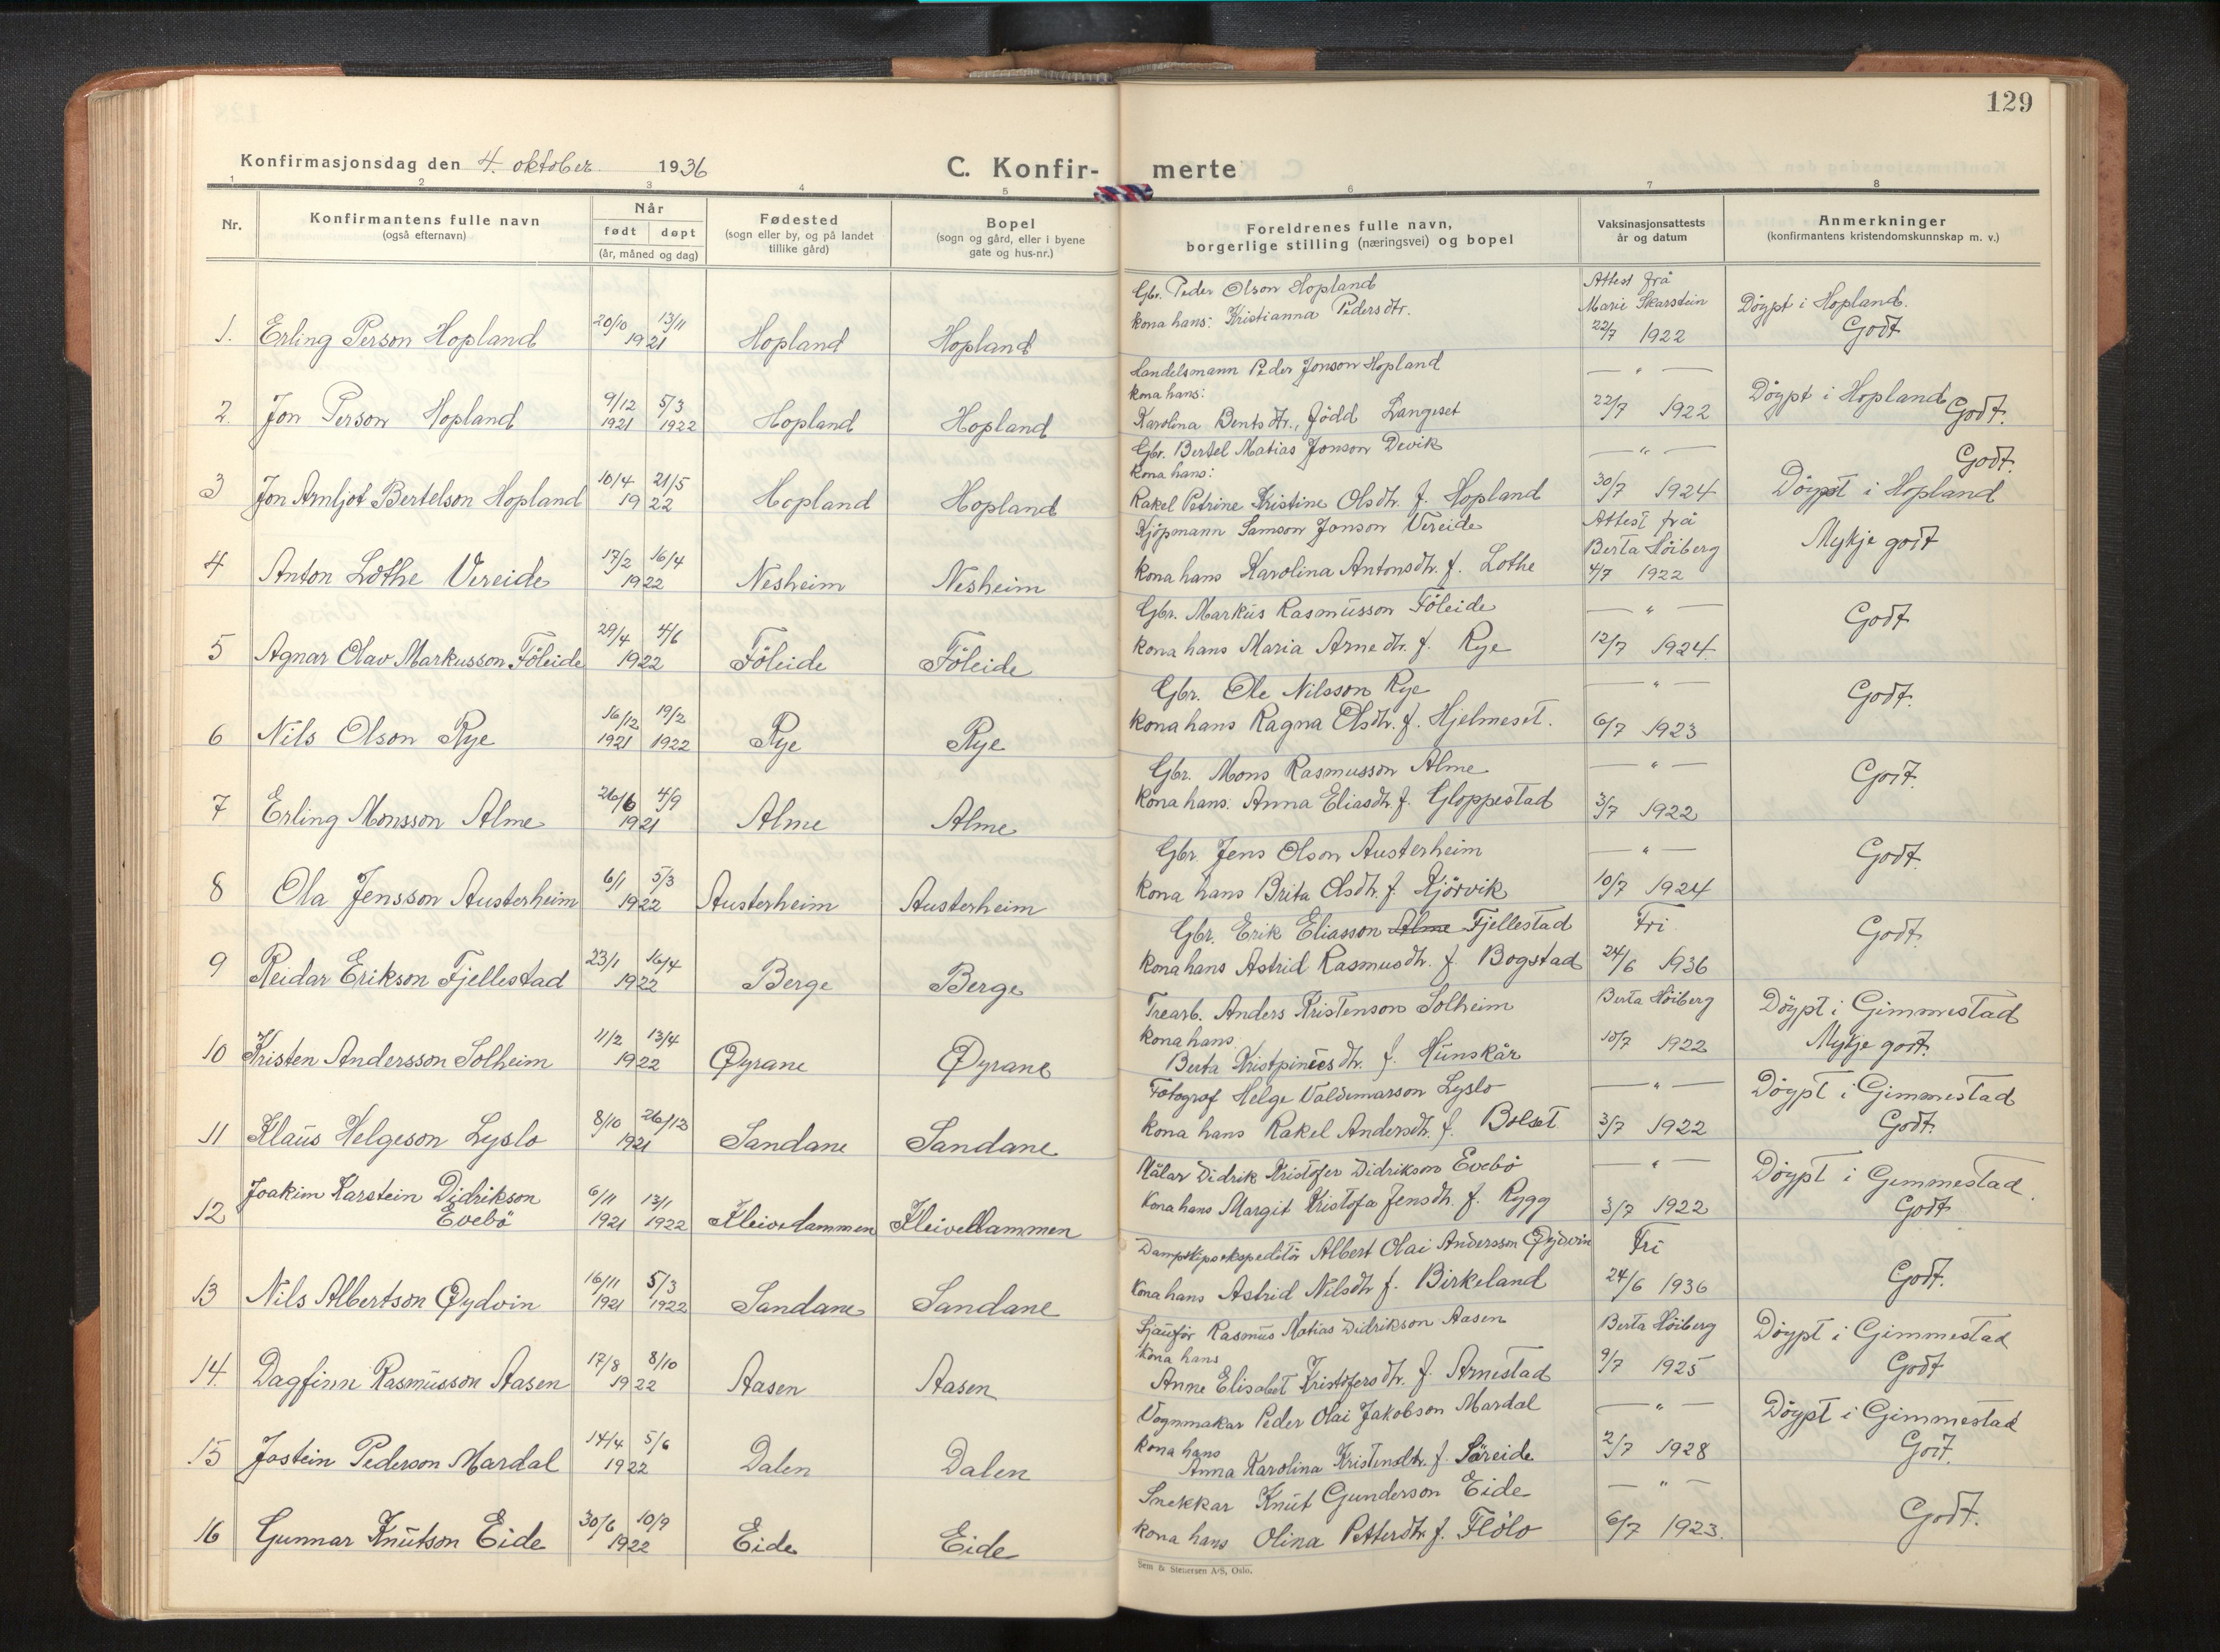 129
Konfirmasjonsdag den 4. oktober 1936
C. Konfir-
merte
1 2 3 4 5 6 7 8
Nr.
Konfirmantens fulle navn
(også efternavn)
Når
født døpt
(år, måned og dag)
Fødested
(sogn eller by, og på landet
tillike gård)
Bopel
(sogn og gård, eller i byene
gate og hus-nr.)
Foreldrenes fulle navn,
borgerlige stilling (næringsvei) og bopel
Vaksinasjonsattests
år og datum
Anmerkninger
(konfirmantens kristendomskunnskap m. v.)
1. Erling Person Hopland 20/10 13/11 1921 Hopland Hopland
Gbr. Peder Olson Hopland
kona hans: Kristianna Pedersdtr.
Attest frå
Marie Skarstein
22/7 1922
Döypt i Hopland.
Godt
2. Jon Person Hopland 9/12 1921 5/3 1922 Hopland Hopland
Handelsmann Peder Jonson Hopland
kona hans:
Karolina Bentsdtr., född Langeset
— " —
22/7 1922
Döypt i Hopland
Godt.
3 Jon Arnljot Bertelson Hopland 10/4 21/5 1922 Hopland Hopland
Gbr. Bertel Matias Jonson Devik
kona hans:
Rakel Petrine Kristine Olsdtr. f. Hopland
— " —
30/7 1924
Godt.
Döypt i Hopland
4 Anton Lothe Vereide 17/2 16/4 1922 Nesheim Nesheim
Kjöpmann Samson Jonson Vereide
kona hans Karolina Antonsdtr. f. Lothe
Attest frå
Berta Höiberg
4/7 1922
Mykje godt
5 Agnar Olav Markusson Föleide 29/4 4/6 1922 Föleide Föleide
Gbr. Markus Rasmusson Föleide
kona hans Maria Arnedtr. f. Rye
— " —
12/7 1924
Godt
6 Nils Olson Rye 16/12 1921 19/2 1922 Rye Rye
Gbr. Ole Nilsson Rye
kona hans Ragna Olsdtr. f. Hjelmeset.
— " —
6/7 1923
Godt.
7 Erling Monsson Alme 26/6 4/9 1921 Alme Alme
Gbr. Mons Rasmusson Alme
kona hans. Anna Eliasdtr. f. Gloppestad
— " —
3/7 1922
Godt.
8 Ola Jensson Austerheim 6/1 5/3 1922 Austerheim Austerheim
Gbr. Jens Olson Austerheim
kona hans Brita Olsdtr. f. Kjörvik
— " —
10/7 1924
Godt.
9 Reidar Erikson Fjellestad 23/1 16/4 1922 Berge Berge
Gbr. Erik Eliasson Alme Fjellestad
kona hans Astrid Rasmusdtr. f. Bogstad
Fri
24/6 1936
Godt.
10 Kristen Andersson Solheim 11/2 13/4 1922 Øyrane Øyrane
Trearb. Anders Kristenson Solheim
kona hans
Berta f. Hunskår
Berta Höiberg
10/7 1922
Döypt i Gimmestad
Mykje godt.
11 Klaus Helgeson Lyslo 8/10 26/12 1921 Sandane Sandane
Fotograf Helge Valdemarson Lyslo
kona hans Rakel Andersdtr. f. Bolset
— " —
3/7 1922
Döypt i Gimmestad
Godt.
12 Joakim Karstein Didrikson
Evebö 6/11 1921 13/1 1922 Kleivedammen Kleivedammen
Målar Didrik Kristofer Didrikson Evebö
kona hans Margit Kristofa Jensdtr. f. Rygg
— " —
3/7 1922
Döypt i Gimmestad.
Godt
13 Nils Albertson Øydvin 16/11 1921 5/3 1922 Sandane Sandane
Dampskipsekspeditör Albert Olai Andersson Øydvin
kona hans Astrid Nilsdtr f. Birkeland
Fri
24/6 1936
Godt.
14. Dagfinn Rasmusson Aasen 17/8 8/10 1922 Aasen Aasen
Sjauför Rasmus Matias Didrikson Aasen
kona hans
Anne Elisabet Kristofersdtr. f. Arnestad
Berta Höiberg
9/7 1925
Döypt i Gimmestad
Godt
15 Jostein Pederson Mardal 14/4 5/6 1922 Dalen Dalen
Vognmakar Peder Olai Jakobson Mardal
kona hans
Anna Karolina Kristensdtr. f. Söreide
— " —
2/7 1928
Döypt i Gimmestad
Godt.
16 Gunnar Knutson Eide 30/6 10/9 1922 Eide Eide
Snekkar Knut Gunderson Eide
kona hans Olina Pettersdtr. f. Flölo
— " —
6/7 1923.
Godt.
Sem & Stenersen A/S, Oslo.